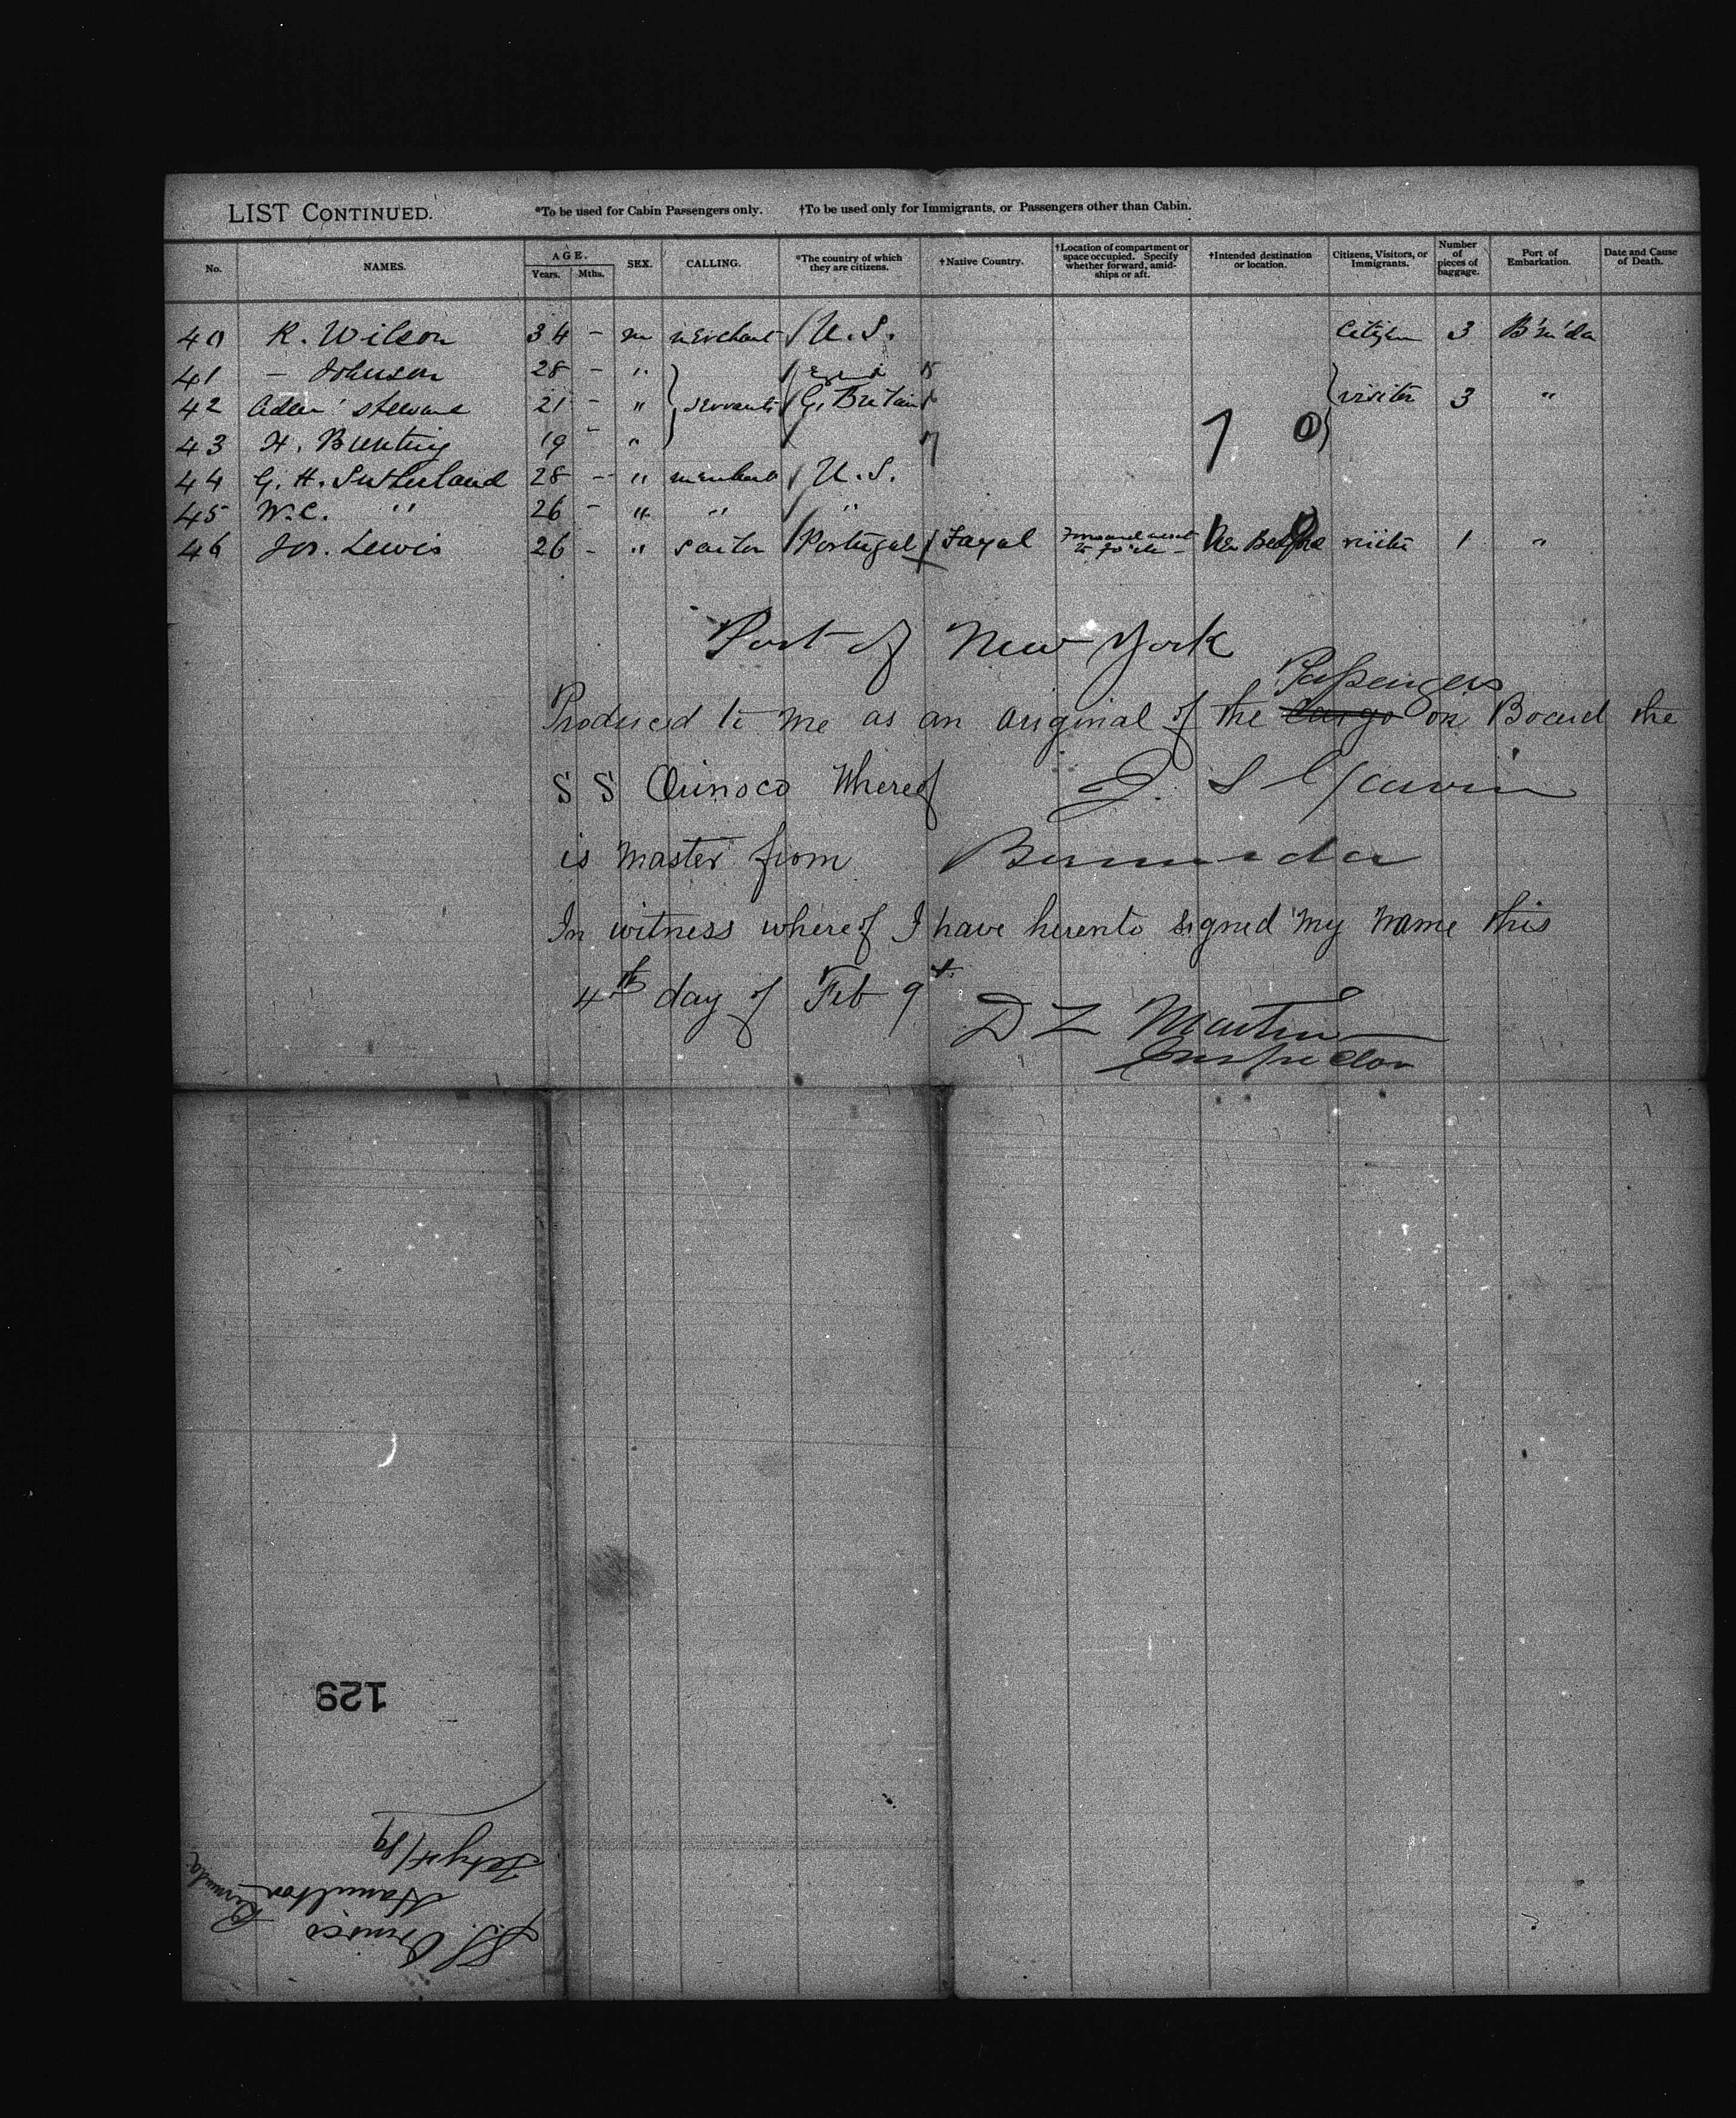 LIST CONTINUED. *To be used for Cabin Passengers only. †To be used only for Immigrants, or Passengers other than Cabin.
No. NAMES. AGE. Years. Mths. SEX. CALLING. *The country of which they are citizens. †Native Country. †Location of compartment or space occupied. Specify whether forward, amidships or aft. †Intended destination or location. Citizens, Visitors, or Immigrants. Number of pieces of baggage. Port of Embarkation. Date and Cause of Death.
40 R. Wilson 34 - m merchant / U.S. Citizen 3 B'm'da
41 - Johnson 28 - "
42 Stewart 21 - " } servants / G. Britain } visitor 3 "
43 H. Bunting 19 - "
44 G. H. Sutherland 28 - " merchant / U.S.
45 W.C. " 26 - " " / "
46 Jos. Lewis 26 - " sailor / Portugal / Fayal New Bedford 1 "
Port of New York
Passengers
Produced to me as an original of the cargo on Board the
S S Orinoco Whereof J. S.
is Master from Bermuda
In witness whereof I have herento signed my name this
4th day of Feb 9
D Z Martin
Inspector
129
S.S. Orinoco
Hamilton Bermuda
Feby 4/89